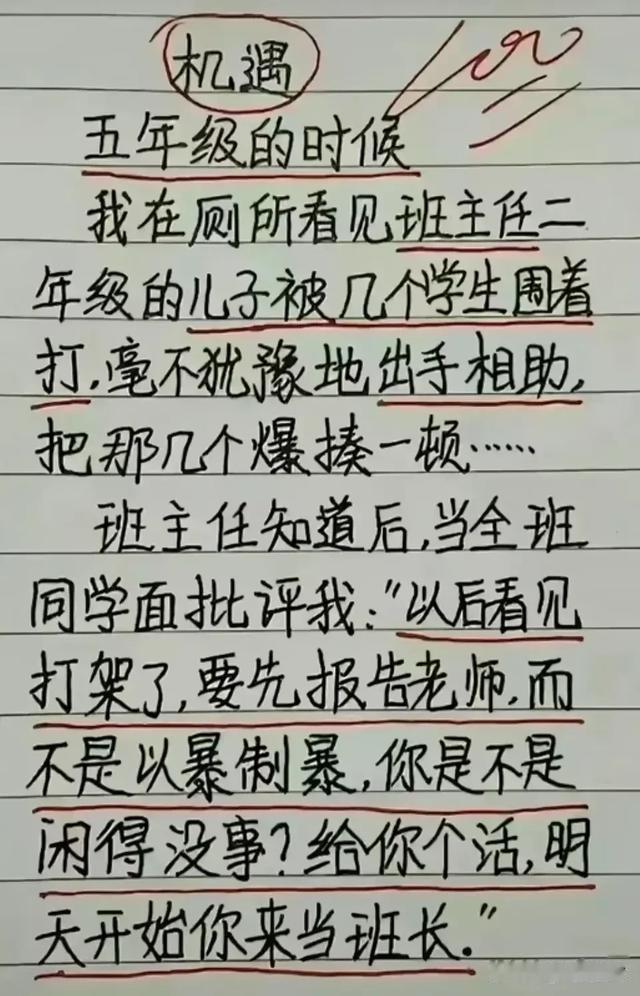 机遇
100
五年级的时候
我在厕所看见班主任二
年级的儿子被几个学生围着
打,毫不犹豫地出手相助,
把那几个爆揍一顿……
班主任知道后,当全班
同学面批评我:"以后看见
打架了,要先报告老师,而
不是以暴制暴,你是不是
闲得没事?给你个活,明
天开始你来当班长."